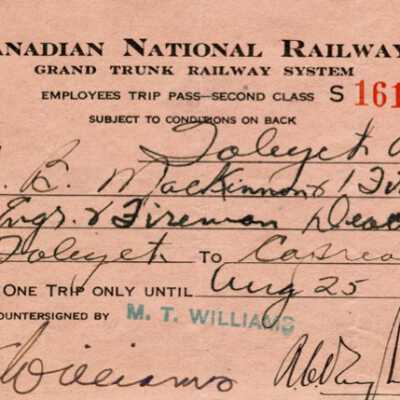 ANADIAN NATIONAL RAILWAY
GRAND TRUNK RAILWAY SYSTEM
EMPLOYEES TRIP PASS—SECOND CLASS S 161
SUBJECT TO CONDITIONS ON BACK
Foleyet
B. MacKinnon & 1 Fir
Engr. & Fireman Dead
Foleyet TO Capreo
ONE TRIP ONLY UNTIL Aug 25
OUNTERSIGNED BY M. T. WILLIAMS
Williams